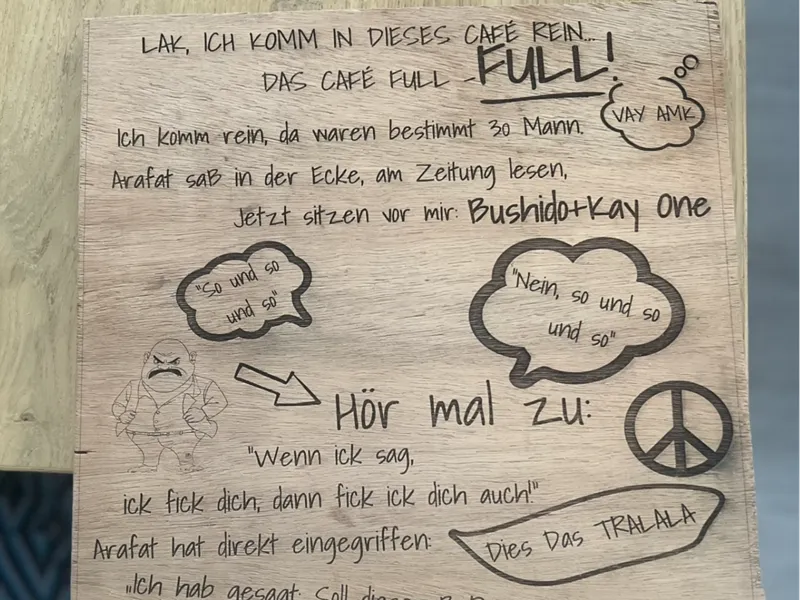 LAK, ICH KOMM IN DIESES CAFÉ REIN...
DAS CAFÉ FULL - FULL!
VAY AMK
Ich komm rein, da waren bestimmt 30 Mann.
Arafat saß in der Ecke, am Zeitung lesen,
Jetzt sitzen vor mir: Bushido+Kay One
"So und so
und so"
"Nein, so und so
und so"
Hör mal zu:
"Wenn ick sag,
ick fick dich, dann fick ick dich auch!"
Arafat hat direkt eingegriffen:
Dies Das TRALALA
"Ich hab gesagt: Soll